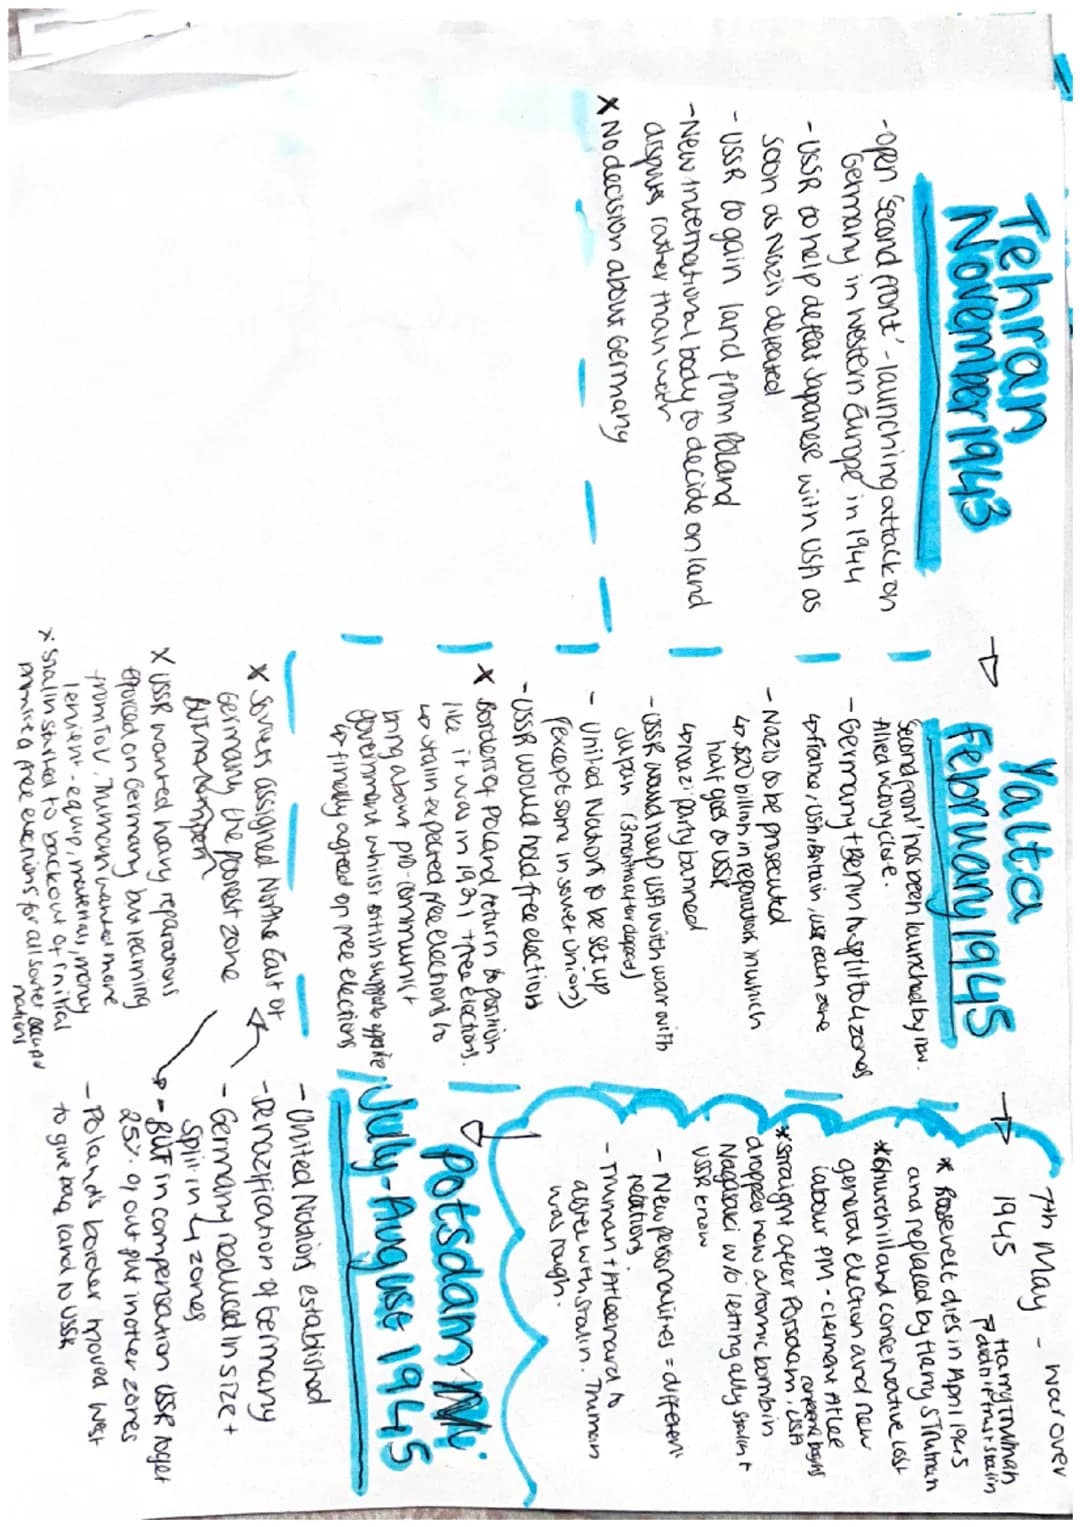 Tehran
November 1943
-Open 'second front' - launching attack on
Germany in Western Europe in 1944
- USSR to help defeat Japanese with USA as
soon as Nazis defeated
- USSR to gain land from Poland
-New international body to decide on land
disputes rather than with
x No decision about Germany
→
Yalta
February 1945
'Second front' has been launched by now.
Allied victory close.
- Germany + Berlin to split to 4 zones
↳ France, USA, Britain, USSR each zone
- Nazis to be prosecuted
↳ $20 billion in reparations in which
half goes to USSR
↳ nazi party banned
-USSR would help USA with war with
Japan (3 months after defeat)
- United Nations to be set up
(except some in soviet union)
-USSR would hold free elections
x Borders of Poland return to position
like it was in 1921 + free elections.
↳ Stalin expected free elections to
bring about pro-communist
government whilst british support opposite
↳ finally agreed on free elections
→
7th May - war over
1945
Harry Truman
didn't trust Stalin
* Roosevelt dies in April 1945
and replaced by Harry S Truman
*Churchill and conservative lost
general election and new
labour PM - Clement Atlee
*Straight after Potsdam, USA
dropped new atomic bomb in
Nagasaki w/o letting ally Stalin +
USSR know
- New personalities = different
relations.
- Truman + Atlee hard to
agree with Stalin. Truman
was rough.
Potsdam
July-August 1945
- United Nations established
- Denazification of Germany
- Germany reduced in size +
split in 4 zones
- BUT in compensation USSR to get
25% of output in other zones
- Poland's border moved west
to give bag land to USSR
x Soviets assigned North East of
Germany the poorest zone
x USSR wanted heavy reparations
enforced on Germany but learning
from ToV. Truman wanted more
lenient - equip, materials, money
x Stalin started to back out of initial
promise of free elections for all soviet occupied
nations